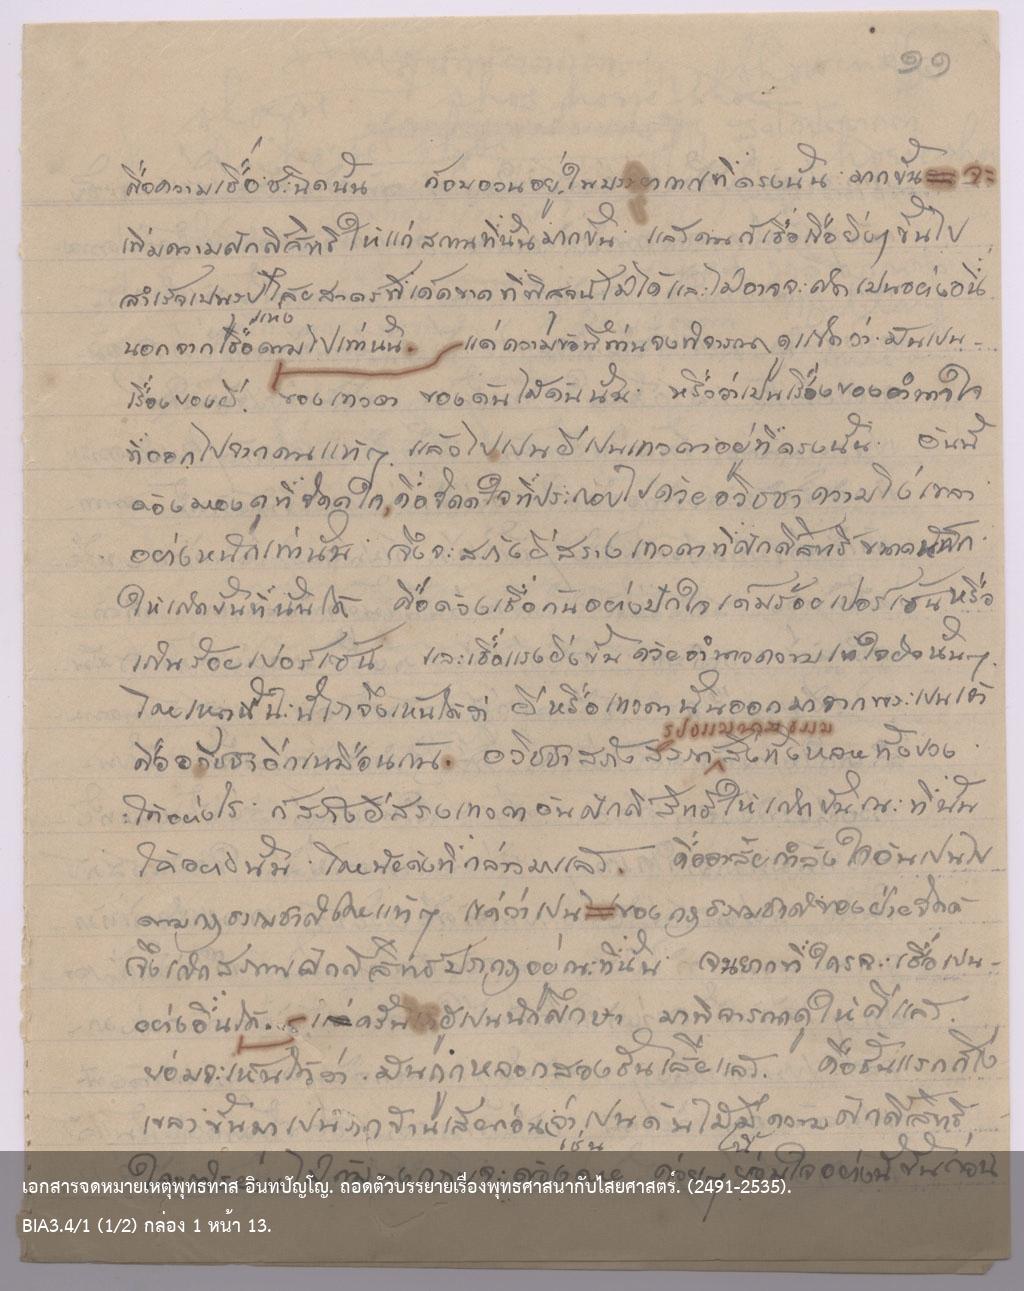 ๑๑
คือความเชื่อชะนิดนั้น ก้อนอวนอยู่ในบรรยากาศที่ตรงนั้น มากขึ้น จะ
เพิ่มความศักดิ์สิทธิ์ให้แก่สถานที่นั้นมากขึ้น แล้วคนก็เชื่อถือยิ่งๆขึ้นไป
สำเร็จเปนรูปไสยสาตร์ที่เด็ดขาด ที่พิสูจน์ไม่ได้ และไม่อาจจะ เปนอย่างอื่น
นอกจากเชื่อตามไปเท่านั้น. แต่ความข้อนี้ท่านจงพิจารณาดู ว่า มันเปน
เรื่องของผี. ของเทวดา ของต้นไม้ต้นนั้น หรือว่าเปนเรื่องของอำนาจใจ
ที่ออกไปจากคนแท้ๆ แล้วไปเปนผีเปนเทวดาอยู่ที่ตรงนั้น อันนี้
ต้องมองดูที่จิตต์ใจ, คือจิตต์ใจที่ประกอบไปด้วยอวิชชา ความโง่เขลา
อย่างหนักเท่านั้น จึงจะสร้างผีสร้างเทวดาที่ศักดิ์สิทธิ์ขนาดหนัก
ให้เกิดขึ้นที่นั้นได้ คือต้องเชื่อกันอย่างปักใจ เต็มร้อยเปอร์เซ็นหรือ
เกินร้อยเปอร์เซ็น และเชื่อแรงยิ่งขึ้น ด้วยอำนาจความ นั้นๆ.
โดยเหตุนี้ จึงเห็นได้ว่า ผีหรือเทวดานั้นออกมาจากพระเปนเจ้า
รูปธรรมนามธรรม
คืออวิชชาอีกเหมือนกัน. อวิชชาสร้างสรรค์สิ่งทั้งหลายทั้งปวง
ได้อย่างไร ก็สร้างผีสร้างเทวดาอันศักดิ์สิทธิ์ให้เกิดขึ้น ณะ ที่นั้น
ได้อย่างนั้น โดยนัยดังที่กล่าวมาแล้ว. คืออาศัยกำลังใจอันเปนไป
ตามกฎธรรมชาติโดยแท้ๆ แต่ว่าเปน ของกฎธรรมชาติของฝ่ายจิตต์
จึงเกิดสภาพศักดิ์สิทธิ์ปรากฏอยู่ณะที่นั้น จนยากที่ใครจะเชื่อเปน
อย่างอื่นได้. ครั้น ผู้เปนนักศึกษา มาพิจารณาดูให้ดีแล้ว.
ย่อมจะเห็นได้ว่า มันถูกหลอกสองชั้นเสียแล้ว. คือชั้นแรกก็โง่
เขลาขึ้นมาเปนรากฐานเสียก่อน ว่า เปนต้นไม้มีความศักดิ์สิทธิ์
เช่น นี้
เอกสารจดหมายเหตุพุทธทาส อินทปัญโญ. ถอดตัวบรรยายเรื่องพุทธศาสนากับไสยศาสตร์. (2491-2535).
BIA3.4/1 (1/2) กล่อง 1 หน้า 13.